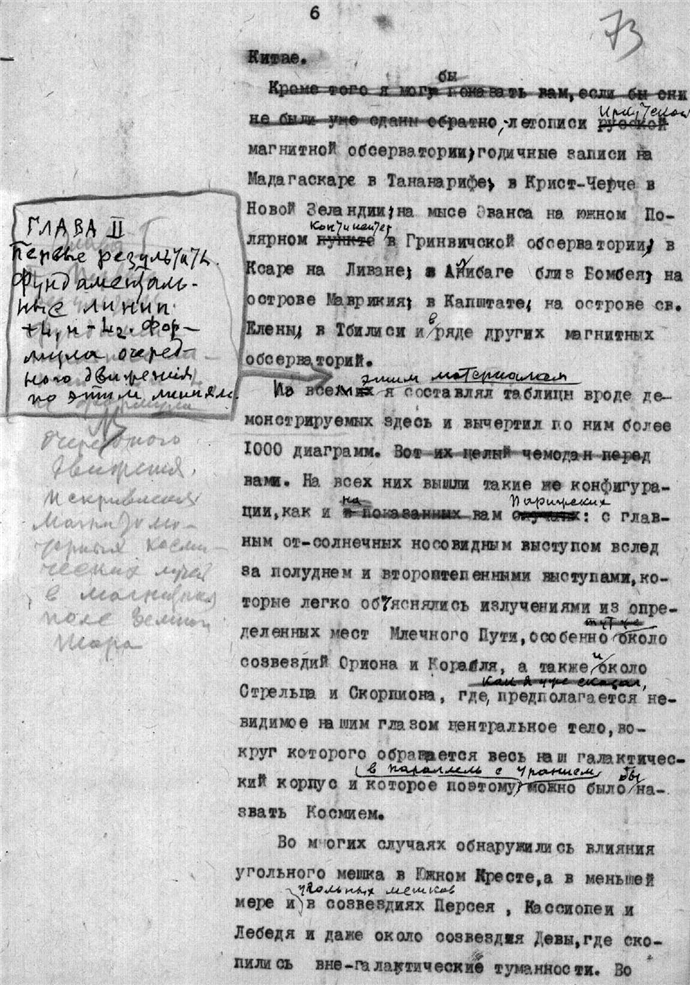 6
73
Китае.
бы
Кроме того я могу показать вам, если бы они
Иркутской
не были уже сданы обратно, летописи русской
магнитной обсерватории, годичные записи на
Мадагаскаре в Тананарифе, в Крист-Черче в
Новой Зеландии, на мысе Эванса на южном По-
континенте
лярном пункте в Гринвичской обсерватории, в
Ксаре на Ливане, в Алибаге близ Бомбея, на
острове Маврикия, в Капштате, на острове св.
в
Елены, в Тбилиси и ряде других магнитных
обсерваторий.
этим материалам
Из всех них я составлял таблицы вроде де-
монстрируемых здесь и вычертил по ним более
1000 диаграмм. Вот их целый чемодан перед
вами. На всех них вышли такие же конфигура-
на Парижских
ции, как и в показанных вам случаях: с глав-
ным от-солнечных носовидным выступом вслед
за полуднем и второтепенными выступами, ко-
торые легко об"яснялись излучениями из опре-
деленных мест Млечного Пути, особенно около
и
созвездий Ориона и Корабля, а также около
как я уже сказал,
Стрельца и Скорпиона, где, предполагается не-
видимое нашим глазом центральное тело, во-
круг которого обращается весь наш галактичес-
в параллель с Ураном бы
кий корпус и которое поэтому можно было на-
звать Космием.
Во многих случаях обнаружились влияния
угольного мешка в Южном Кресте, а в меньшей
угольных мешков
мере и в созвездиях Персея, Кассиопеи и
Лебедя и даже около созвездия Девы, где ско-
пились вне-галактические туманности. Во
ГЛАВА II
Первые результаты.
Фундаменталь-
ные линии
+H, и -H2. Фор-
мула очеред-
ного движения
по этим линиям.
и формула
очередного
движения
искривления
магнитно-
косми-
ческих лучей
в магнитном
поле Земного
Шара